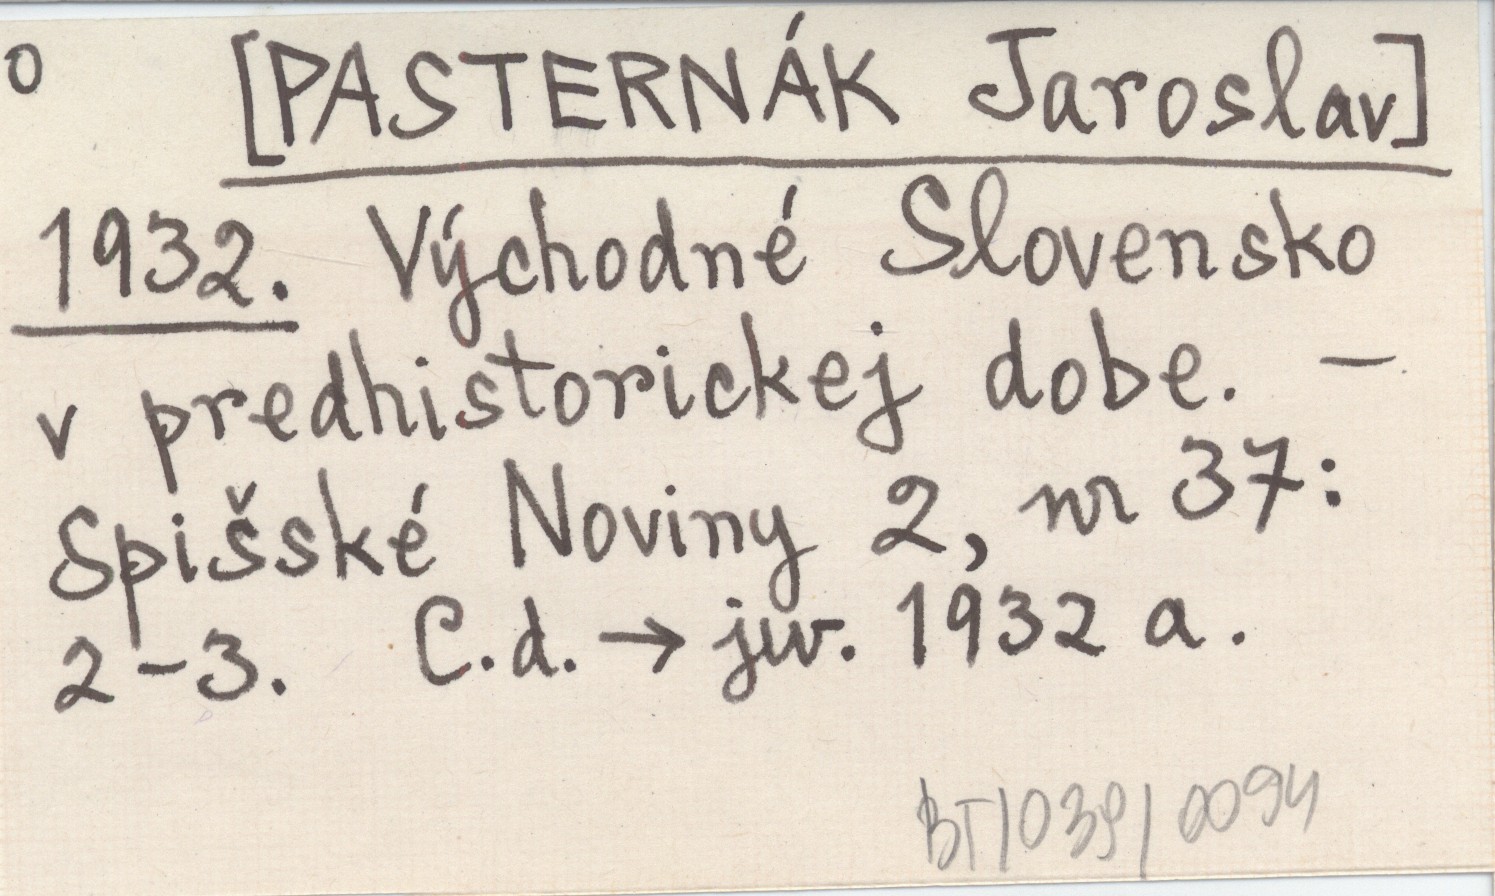 o [PASTERNÁK Jaroslav]
1932. Východné Slovensko
v predhistorickej dobe. –
Spišské Noviny 2, nr 37:
2-3. C.d. → jw. 1932 a.
BT/038/0094